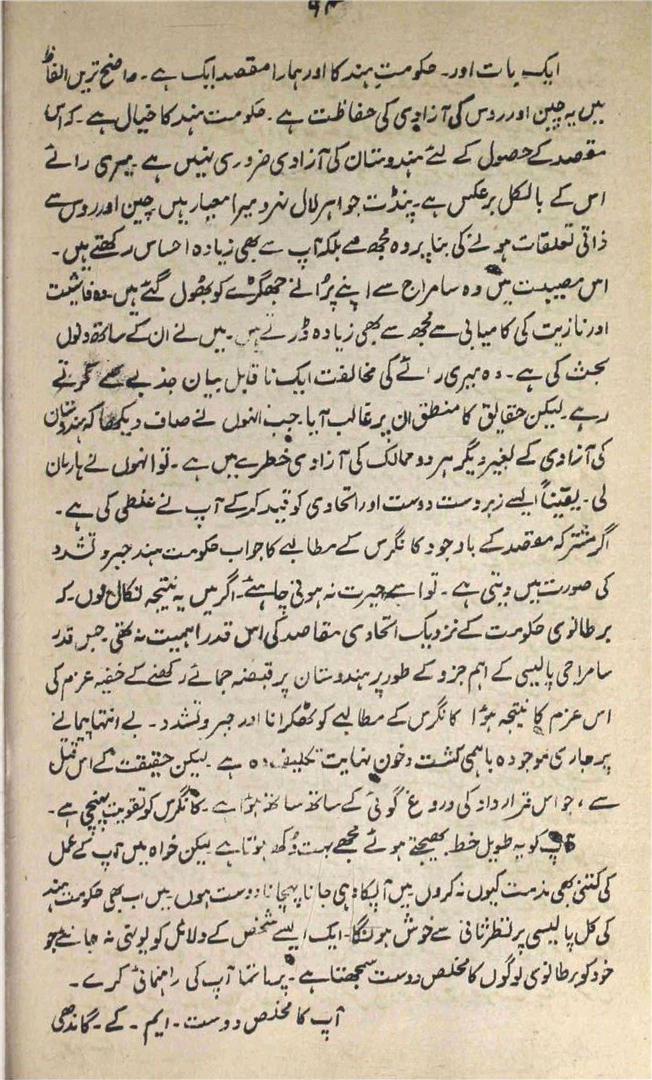 ۹۴
ایک بات اور۔ حکومتِ ہند کا اور ہمارا مقصد ایک ہے۔ واضح ترین الفاظ
میں یہ چین اور روس کی آزادی کی حفاظت ہے۔ حکومت ہند کا خیال ہے۔ کہ اس
مقصد کے حصول کے لئے ہندوستان کی آزادی ضروری نہیں ہے۔ میری رائے
اس کے بالکل برعکس ہے۔ پنڈت جواہر لال نہرو میرا معیار ہیں۔ چین اور روس سے
ذاتی تعلقات ہونے کی بنا پر وہ مجھ سے بلکہ آپ سے بھی زیادہ احساس رکھتے ہیں۔
اس مصیبت میں وہ سامراج سے اپنے پُرانے جھگڑے کو بھُول گئے ہیں۔ وہ فاشیت
اور نازیت کی کامیابی سے مجھ سے بھی زیادہ ڈرتے ہیں۔ میں نے ان کے ساتھ دنوں
بحث کی ہے۔ وہ میری رائے کی مخالفت ایک ناقابل بیان جذبے سے کرتے
رہے۔ لیکن حقایق کا منطق ان پر غالب آیا۔ جب انہوں نے صاف دیکھا کہ ہندوستان
کی آزادی کے بغیر دیگر ہر دو ممالک کی آزادی خطرے میں ہے۔ تو انہوں نے ہار مان
لی۔ یقیناً ایسے زبردست دوست اور اتحادی کو قید کر کے آپ نے غلطی کی ہے۔
اگر مشترکہ مقصد کے باوجود کانگرس کے مطالبے کا جواب حکومت ہند جبر و تشدد
کی صورت میں دیتی ہے۔ تو اسے حیرت نہ ہونی چاہئے۔ اگر میں یہ نتیجہ نکال لوں۔ کہ
برطانوی حکومت کے نزدیک اتحادی مقاصد کی اس قدر اہمیت نہ تھی۔ جس قدر
سامراجی پالیسی کے اہم جزو کے طور پر ہندوستان پر قبضہ جمائے رکھنے کے خفیہ عزم کی
اس عزم کا نتیجہ ہوُا کانگرس کے مطالبے کو ٹھکرانا اور جبر و تشدد۔ بے انتہا پیمانے
پر جاری موجودہ باہمی کشت و خون نہایت تکلیف دہ ہے۔ لیکن حقیقت کے اس قتل
سے، جو اس قرارداد کی دروغ گوئی کے ساتھ ساتھ ہوُا ہے۔ کانگرس کو تقویت پہنچی ہے۔
آپ کو یہ طویل خط بھیجتے ہوئے مجھے بہت دُکھ ہوتا ہے لیکن خواہ میں آپ کے عمل
کی کتنی بھی مذمت کیوں نہ کروں میں آپکا وہی جانا پہچانا دوست ہوں۔ میں اب بھی حکومت ہند
کی کل پالیسی پر نظر ثانی سے خوش ہونگا۔ ایک ایسے شخص کے دلائل کو یونہی نہ جانئے جو
خود کو برطانوی لوگوں کا مخلص دوست سمجھتا ہے۔ پرماتما آپ کی راہنمائی کرے۔
آپ کا مخلص دوست۔ ایم۔ کے۔ گاندھی